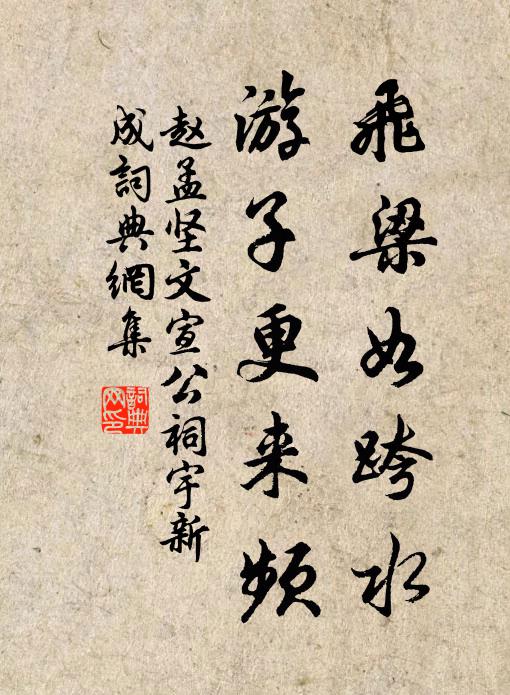 飛梁如跨水
游子更来頻
赵孟坚文宣公祠宇新
成詞典網集
詞典
网印